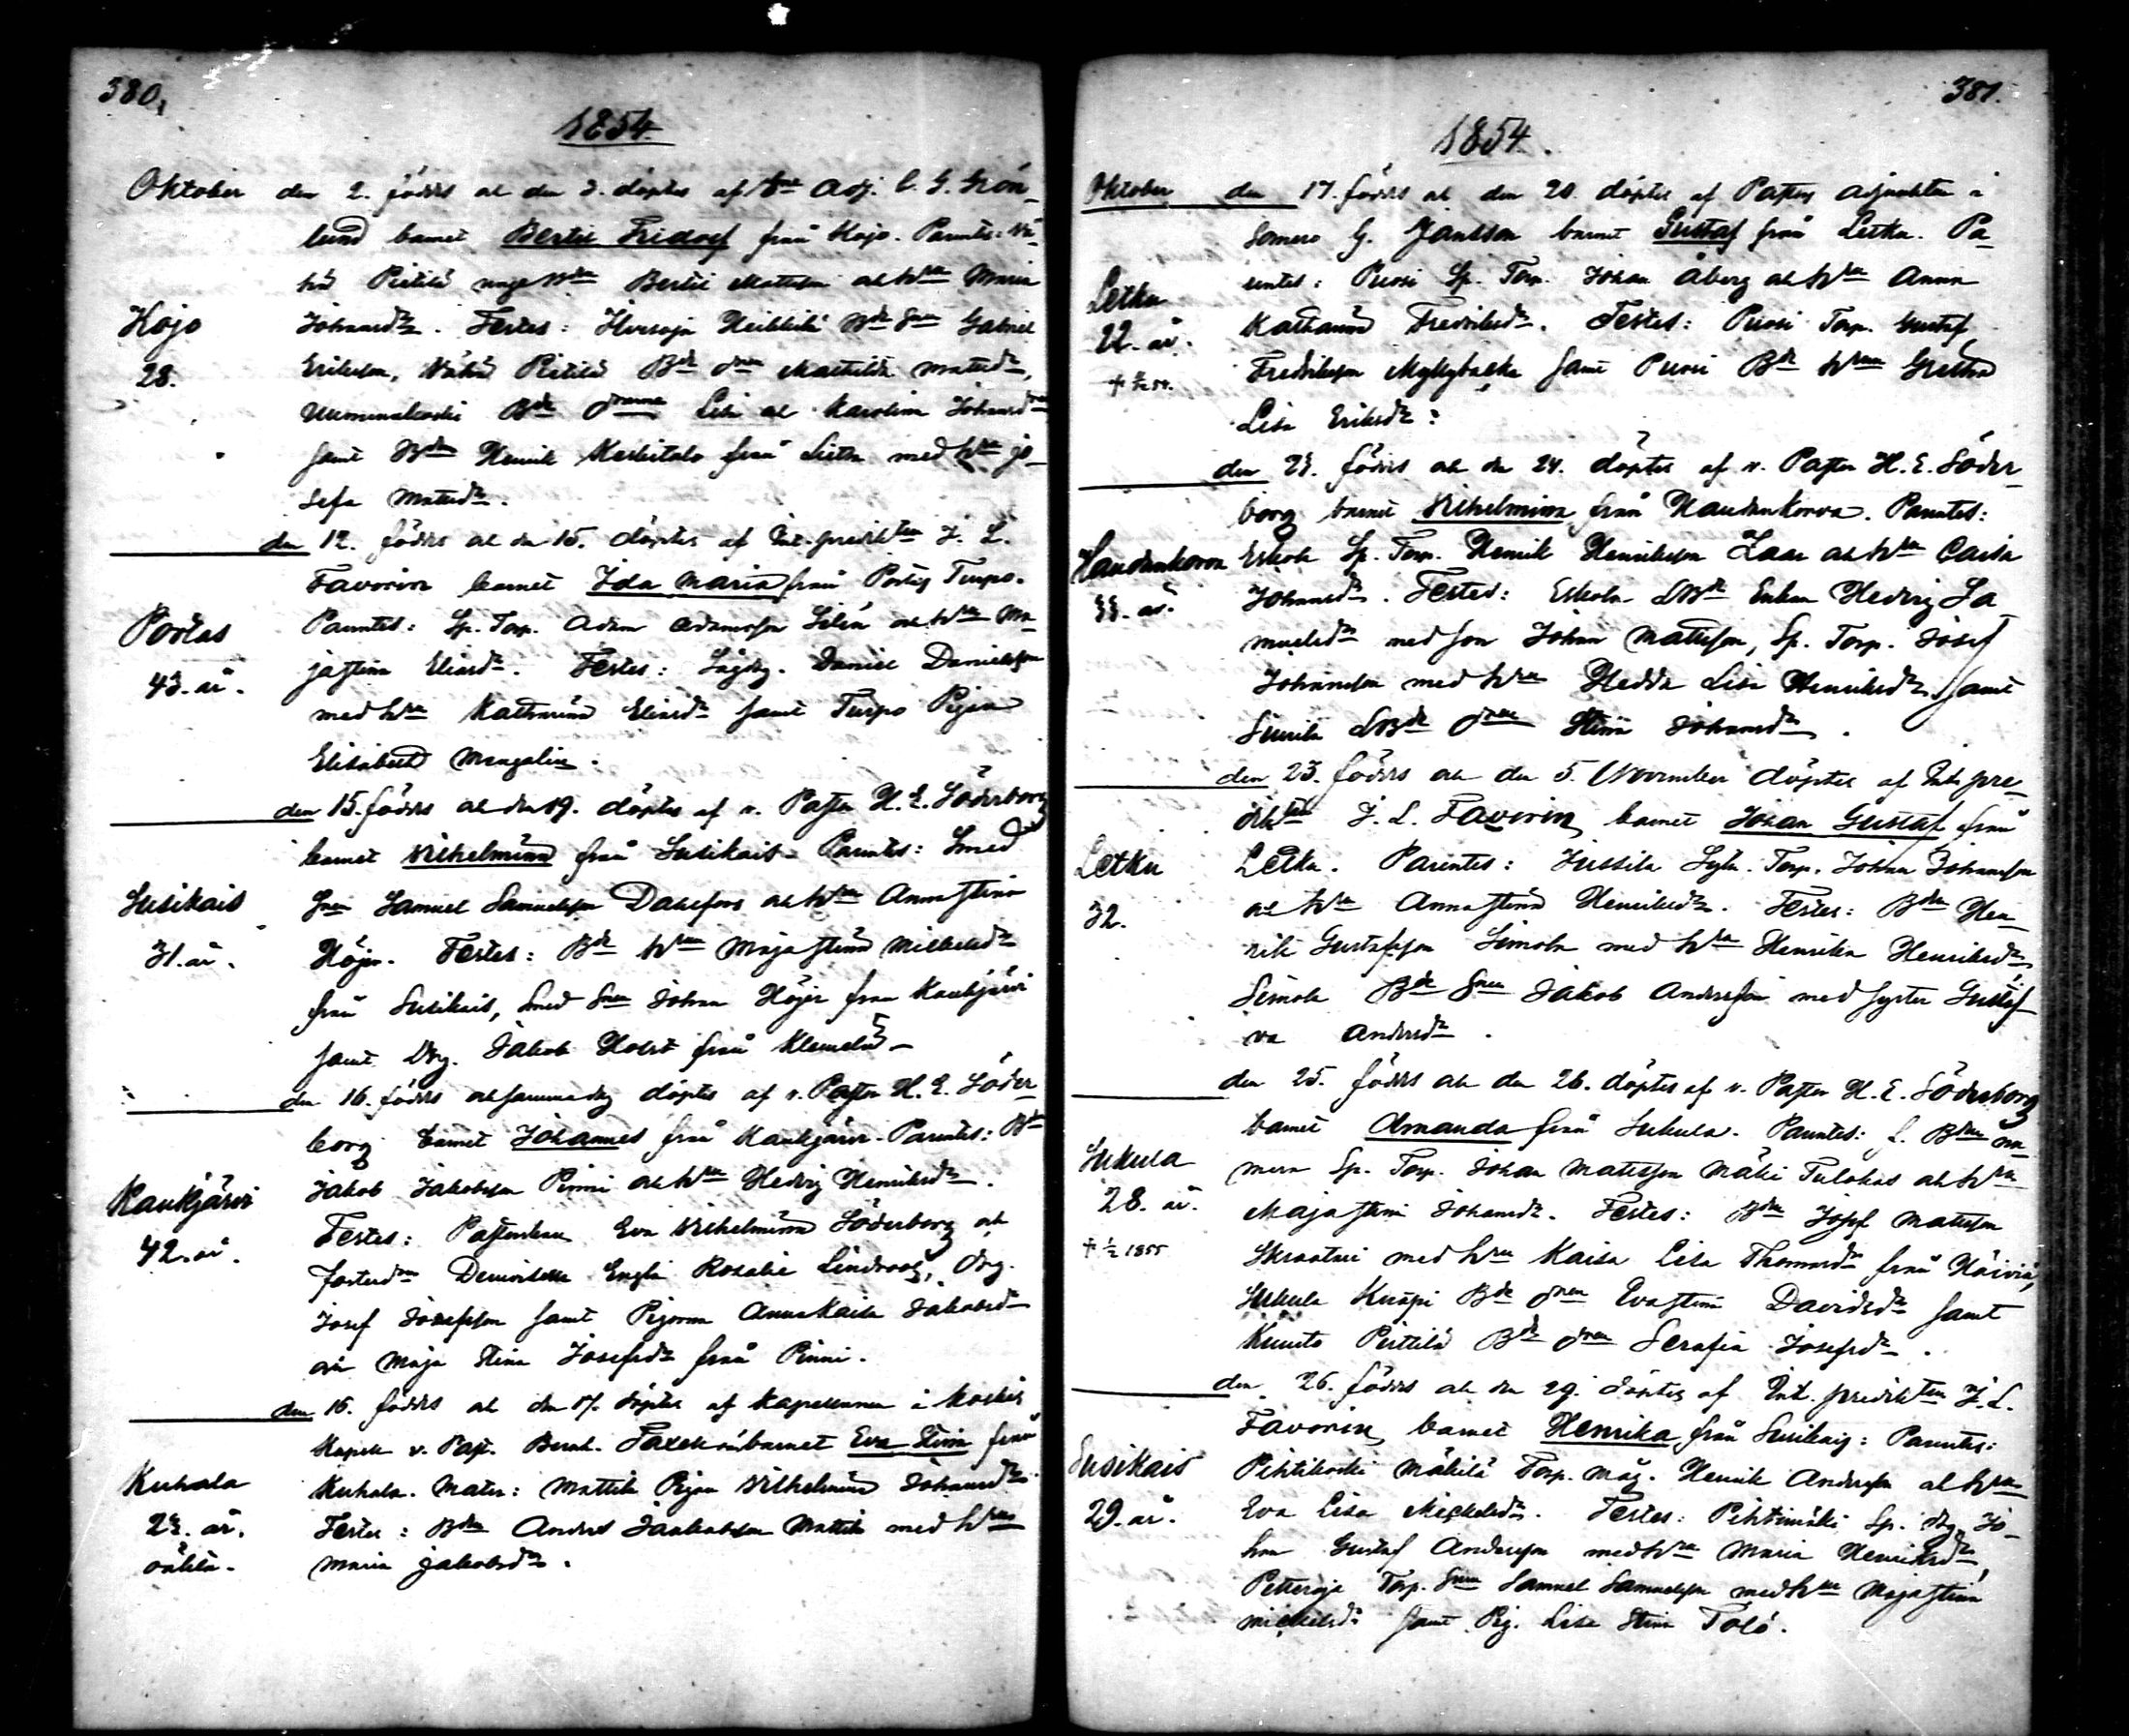 380.
1854.
Oktober den 2. föddes och den 3. döptes af Adj. C. G. Grön-
lund barnet Bertil Fridolf från Kojo. Parentes: Vä-
hä Pietilä unge Bden Bertil Mattsson och hru Maria
Kojo Johansdr. Testes: Heikkilä Bde Son Gabriel
28. Eriksson, Vähä Pietilä Bde dren Mathilda Matsdr,
Bde drarna Lisa och Karolina Johansdr
samt Bden Henrik Keskitalo från Lietha med hru Jo-
sefa Matsdr.
den 12. föddes och den 15. döptes af Ext. predikten J. L.
Favorin barnet Ida Maria från Portas Turpo.
Portas Parentes: Sp. Torp. Adam Adamsson Silén och hru Ma-
43. år. jastina Eliasdr. Testes: Daniel Danielsson
med hru Katharina Eliasdr samt Turpo Pigan
Elisabeth Mengalin.
den 15. föddes och den 19. döptes af v. Pastor H. E. Söderborg
barnet Vilhelmina från Susikais. Parentes: Smed
Susikais Gesn Samuel Samuelsson Dahlfors och hru Annastina
31. år. Höijer. Testes: Bde hrun Majastina Mickelsdr
från Susikais, Smed Son Johan Höijer från Kaukjärvi
samt Drg. Jakob Holst från Klemelä.
den 16. föddes och samma dag döptes af v. Pastor H. E. Söder-
borg barnet Johannes från Kaukjärvi. Parentes: Bden
Kaukjärvi Jakob Jakobsson Pinni och hru Hedvig Henriksdr.
42. år. Testes: Pastorskan Eva Vilhelmina Söderborg och
fosterdr Demoiselle Engla Rosalie Lindroos, Drg.
Josef Josefsson samt Pigorna Annakaisa Jakobsdr
och Maja Stina Josefsdr från Pinni.
den 16. föddes och den 17. döptes af Kapellanen i Koskis
Kapell v. Past. Bernh. Taxell barnet Eva Stina från
Kuhala Kuhala. Mater: Mattila Pigan Vilhelmina Johansdr.
22. år. Testes: Bden Anders Jaakobsson Mattila med hru
oäkta. Maria Jakobsdr.
381.
1854.
Oktober den 17. föddes och den 20. döptes af Pastors adjunkten i
Somero G. Jansson barnet Gustaf från Letku. Pa-
Letku rentes: Puosi Sp. Torp. Johan Åberg och hru Anna
22. år. Katharina Fredriksdr. Testes: Puosi Torp. Gustaf
Fredriksson Myllybacka samt Puosi Bde hrun Gretha
Lisa Eriksdr.
den 21. föddes och den 24. döptes af v. Pastor H. E. Söder-
borg barnet Vilhelmina från Haudankorva. Parentes:
Haudankorva Eskola Sp. Torp. Henrik Henriksson Laar och hru Caisa
år. Johansdr. Testes: Eskola Bde Enkan Hedvig Sa-
muelsdr med son Johan Mattsson, Sp. Torp. Josef
Johansson med hru Hedda Lisa Henriksdr samt
Simila Bde dren Stina Johansdr.
den 23. föddes och den 5. November döptes af Ext. pre-
dikten J. L. Favorin barnet Johan Gustaf från
Letku Letku. Parentes: Jussila Torp. Johan Johansson
32. och hru Annastina Henriksdr. Testes: Bden Hen-
rik Gustafsson Simola med hru Henrika Henriksdr
Simola Bde Son Jakob Andersson med syster Gustaf-
va Andersdr.
den 25. föddes och den 26. döptes af v. Pastor H. E. Söderborg
barnet Amanda från Sukula. Parentes: f. Bden nu-
Sukula mera Sp. Torp. Johan Mattsson Mäki Tulokas och hru
28. år. Majastina Johansdr. Testes: Bden Josef Mattsson
† 1/2 1855 Skraatari med hru Kaisa Lisa Thomasdr från Häiviä,
Sukula Kuoppi Bde dren Evastina Davidsdr samt
Kuuto Pirttilä Bde dren Serafia Josefsdr.
den 26. föddes och den 29. döptes af Ext. predikten J. L.
Favorin barnet Henrika från Susikais: Parentes:
Susikais Pihtikoski Mäkilä Torp. måg. Henrik Andersson och hru
29. år. Eva Lisa Mickelsdr. Testes: Pihtimäki Sp. Drg Jo-
han Gustaf Andersson med hru Maria Henriksdr,
Petteroja Torp. Son Samuel Samuelsson med hru Majastina
Mickelsdr samt Pig. Lisa Stina Tolo.